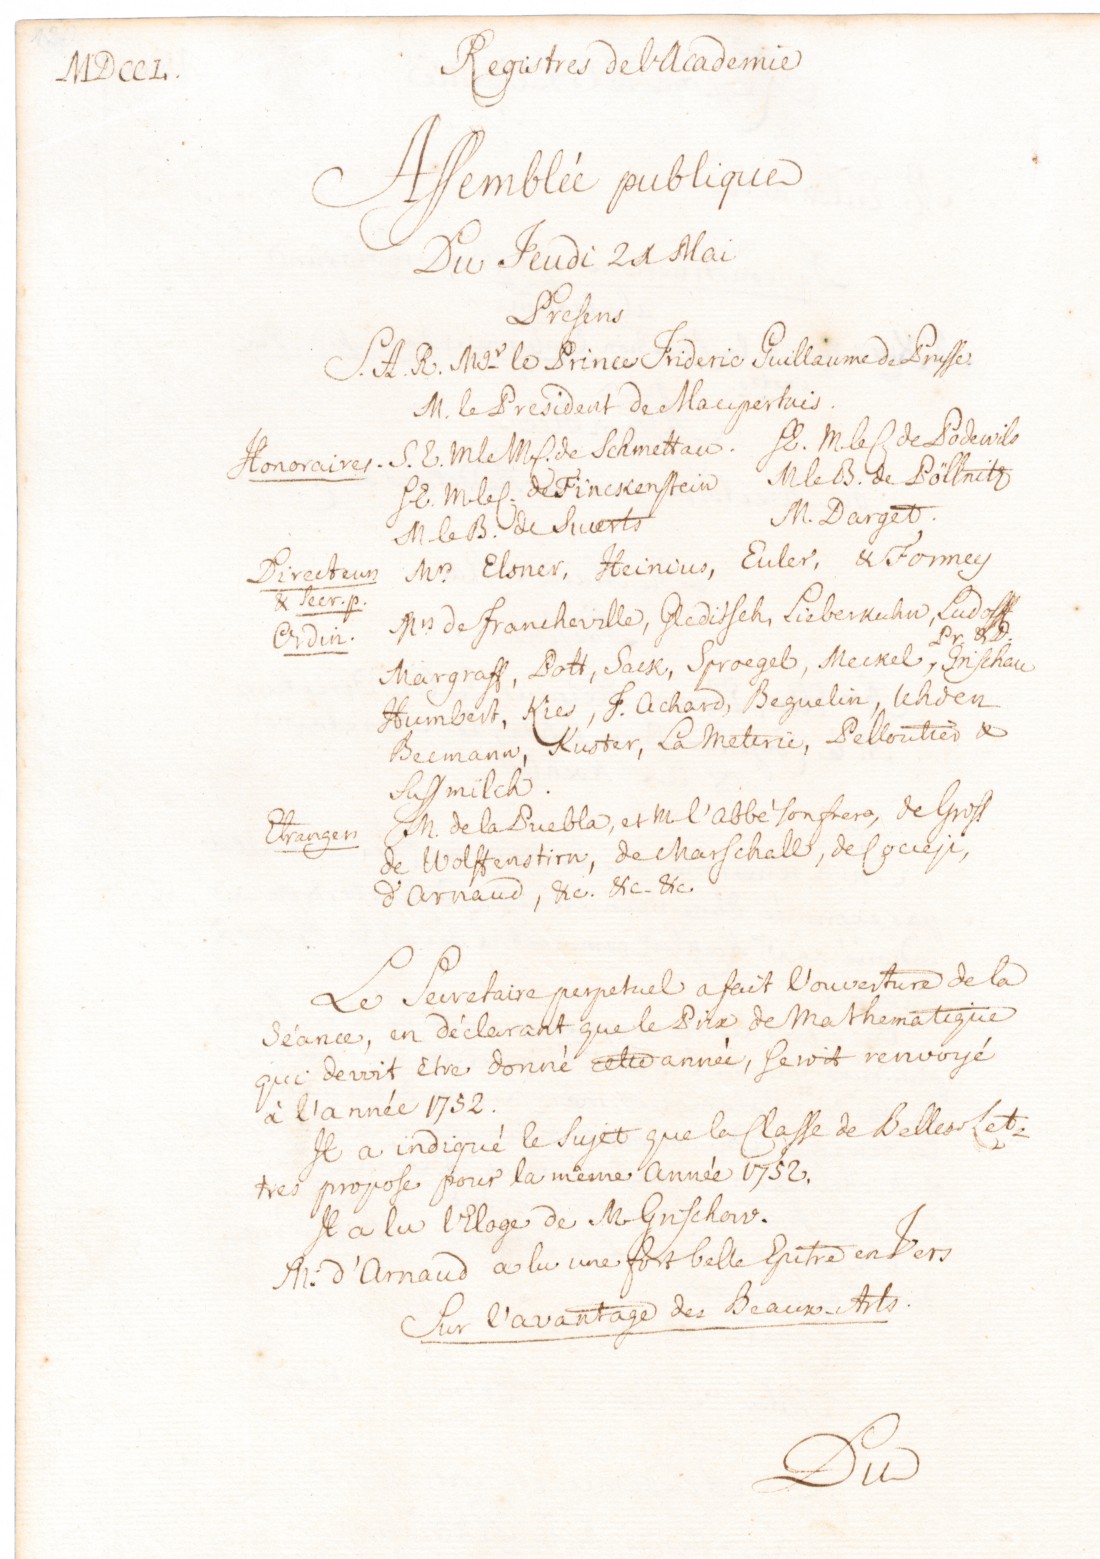 MDCCL.
Registres de l'Academie
Assemblée publique
Du Jeudi 21 Mai
Presens
S. A. R. Mgr le Prince Frideric Guillaume de Prusse.
M. le President de Maupertuis.
Honoraires. S. E. M le Ml. de Schmettau. SE. M. le C. de Podewils
SE. M. le C. de Finckenstein M le B. de Pöllnitz
M le B. de Swerts M. Darget.
Directeurs & Secr. p. Mrs. Elsner, Heinius, Euler, & Formey
Ordin. Mrs de Francheville, Gleditsch, Lieberkuhn, Ludolff
Pr. & D.
Margraff, Pott, Sack, Sproegel, Meckel, Grischau
Humbert, Kies, F. Achard, Beguelin, Uhden
Becmann, Kuster, La Metrie, Pelloutier &
Sussmilch.
Etrangers M. de la Puebla, et M l'abbé son frere, de Gross
de Wolffenstirn, de Marschall, de Cocceji,
d'Arnaud, &c. &c. &c.
Le Secretaire perpetuel a fait l'ouverture de la
Séance, en déclarant que le Prix de Mathematique
qui devoit etre donné cette année, seroit renvoyé
à l'année 1752.
Il a indiqué le sujet que la Classe de Belles Let-
tres propose pour la même année 1752.
Il a lu l'Eloge de M. Grischow.
M. d'Arnaud a lu une fort belle Epitre en Vers
Sur l'avantage des Beaux-Arts.
Du